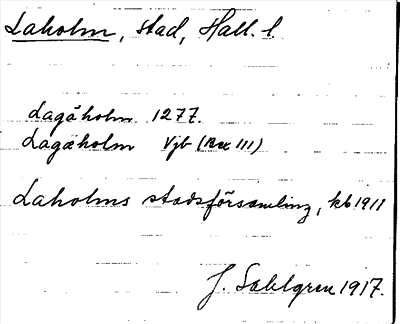 Laholm, stad, Hall. l.
Lagåholm 1277.
Lagaholm Vjb (Bex III)
Laholms stadsförsamling, kb 1911
J. Sahlgren 1917.